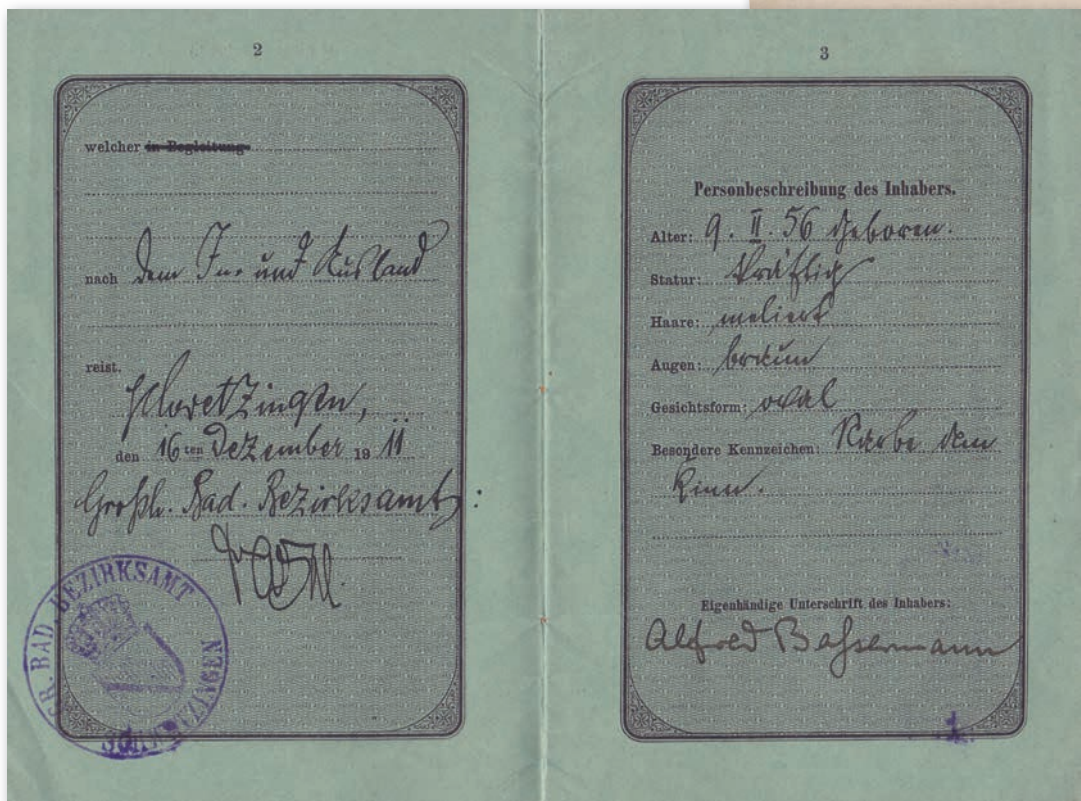 2
welcher in Begleitung
nach dem In- und Ausland
reist.
Schwetzingen,
den 16ten Dezember 1911
Großh. Bad. Bezirksamt:
GR. BAD. BEZIRKSAMT
SCHWETZINGEN
3
Personbeschreibung des Inhabers.
Alter: 9. II. 56 geboren.
Statur: kräftig
Haare: meliert
Augen: braun
Gesichtsform: oval
Besondere Kennzeichen: Narbe am
Kinn.
Eigenhändige Unterschrift des Inhabers:
Alfred Bassermann